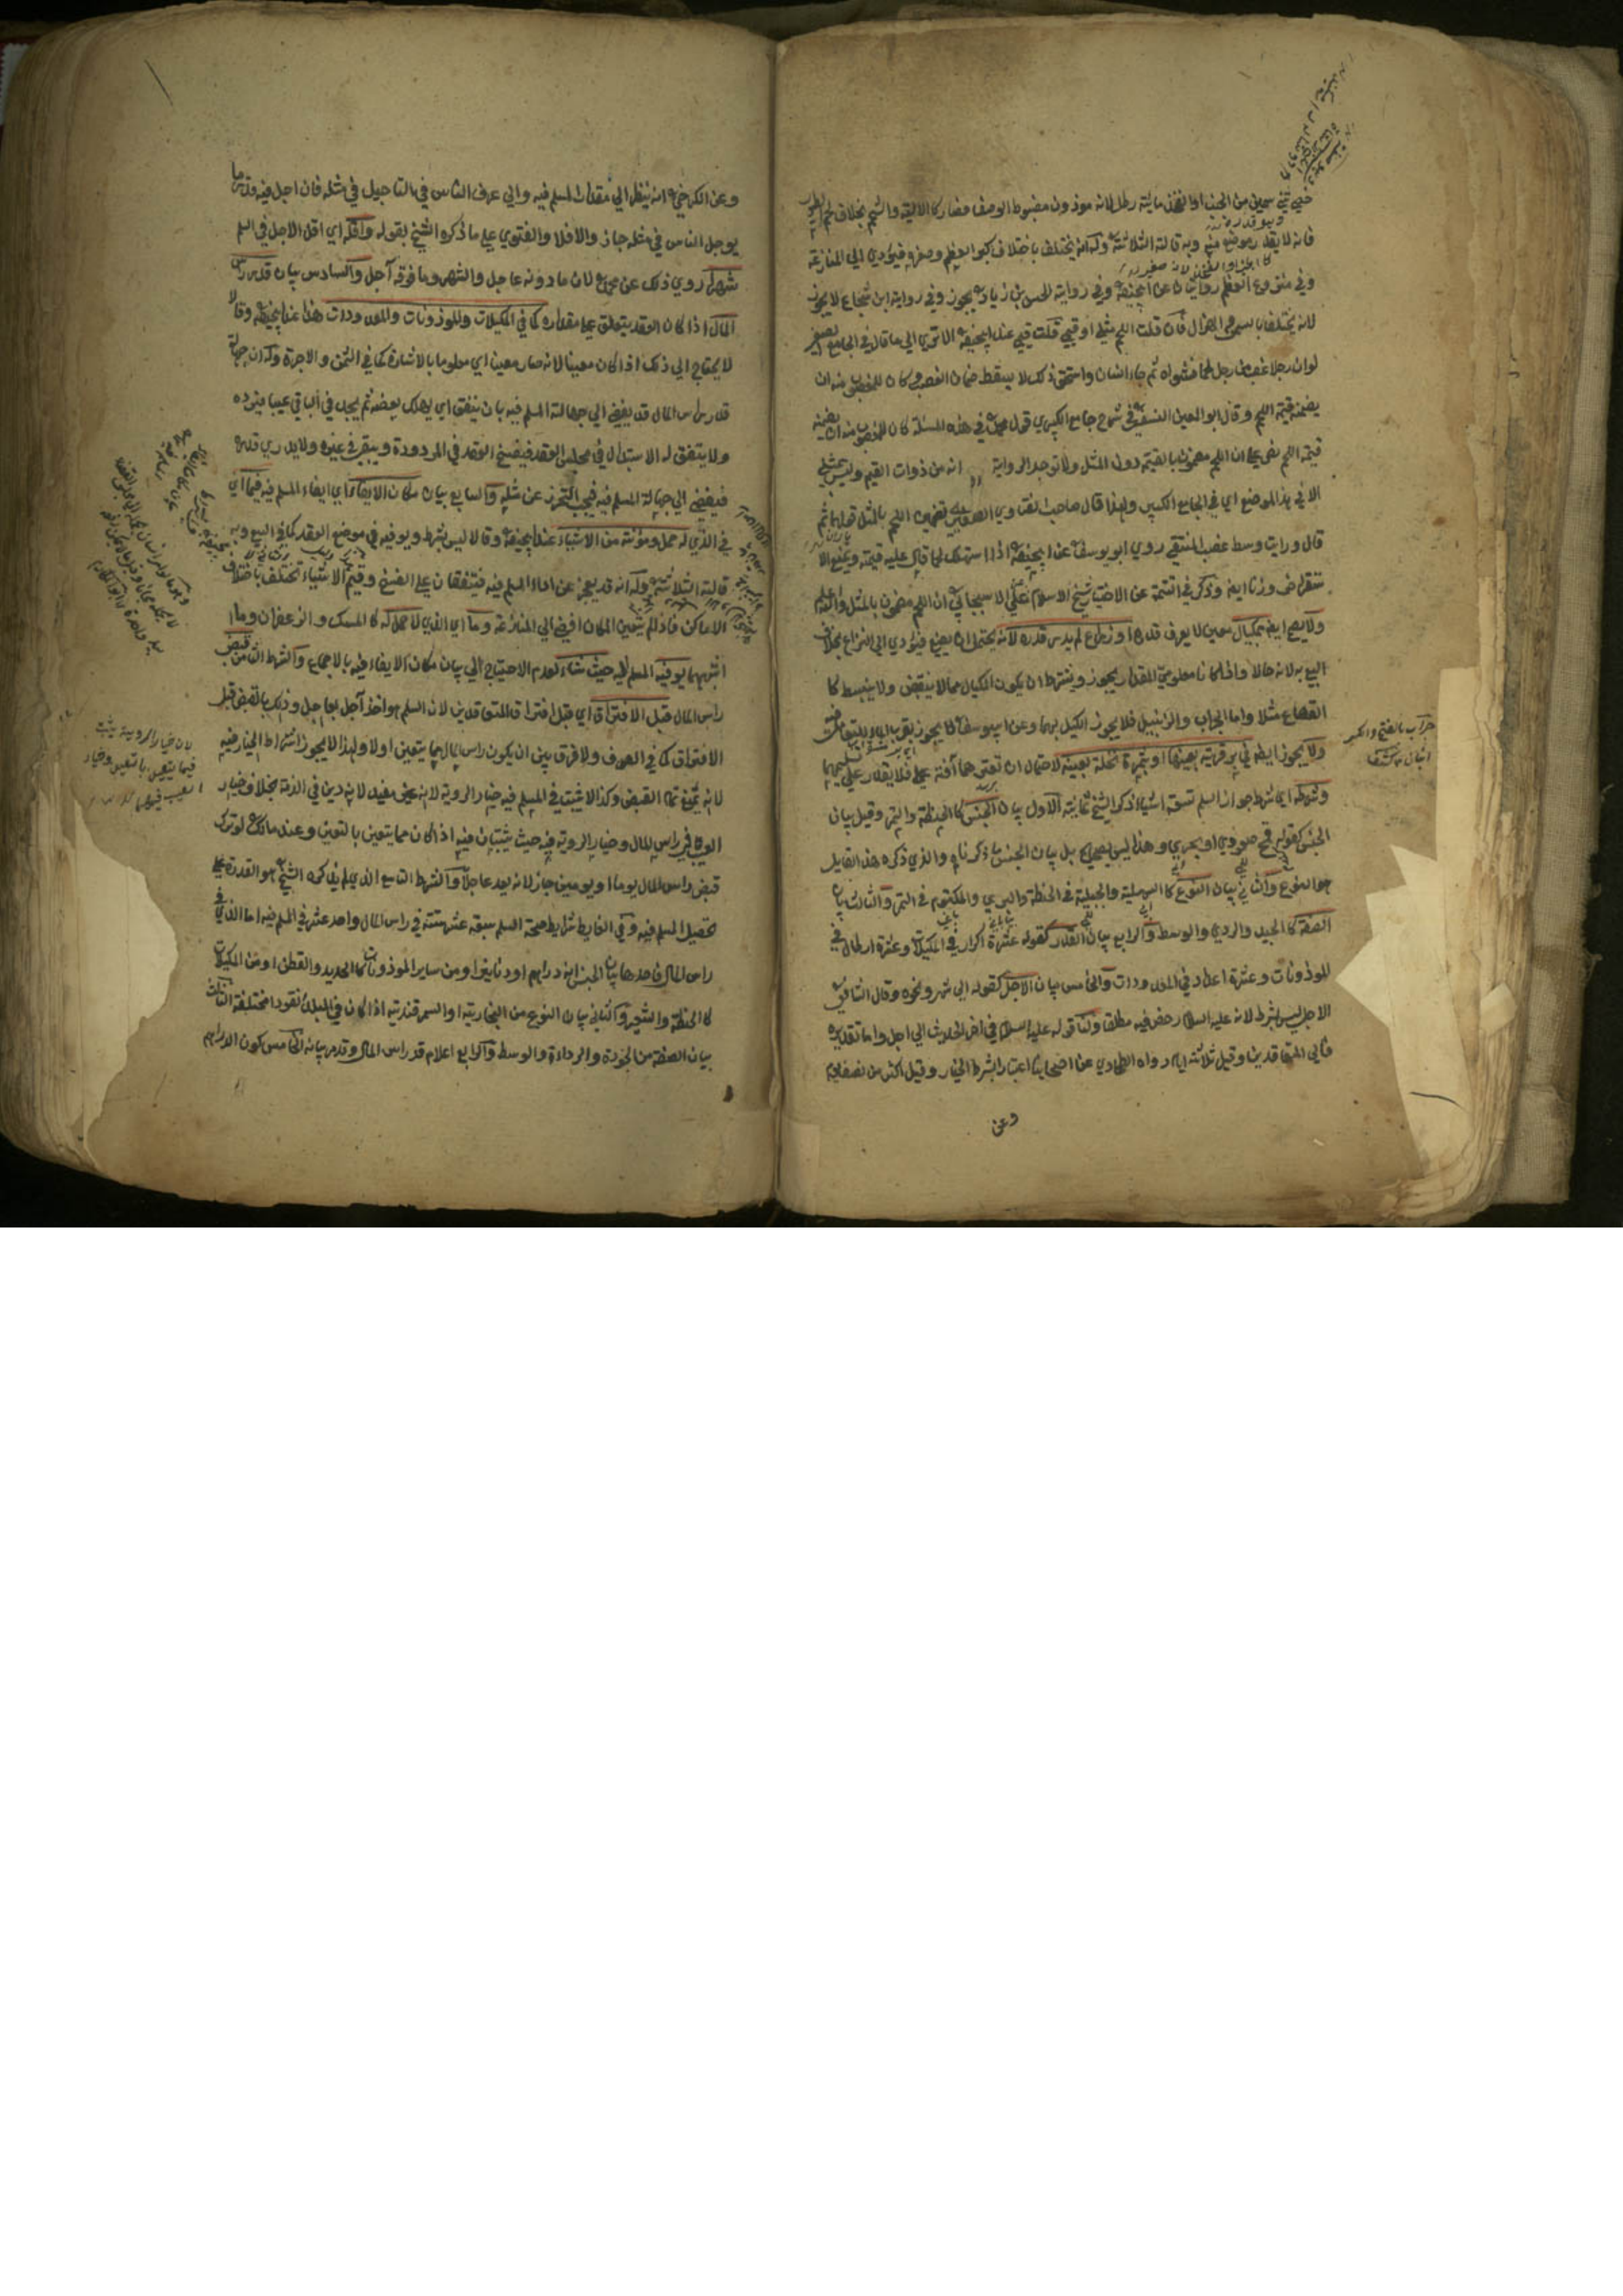 خصي ثني سمين من الجنب او الفخذ مائة رطل لانه موزون مضبوط الوصف فصار كالالية والشحم بخلاف لحم الطيور
فانه لا يقدر موضع منه وبه قالت الثلاثة وله انه يختلف باختلاف كبر العظم وصغره فيؤدي الي المنازعة
وفي منزوع العظم روايتان عن ابيحنيفة وفي رواية الحسن بن زياد يجوز وفي رواية ابن شجاع لا يجوز
لانه يختلف بسمن الهزال فان قلت اللحم مثلي او قيمي قلت قيمي عند ابيحنيفة الا تري الي ما قال في الجامع الصغير
لو ان رجلا غصب من رجل لحما فشواه ثم جاء انسان واستحق ذلك لا يسقط ضمان الغصب كان للمغصوب منه ان
يضمنه قيمة اللحم وقال ابو المعين النسفي في شرح جامع الكبير في قول محمد في هذه المسئلة كان للمغصوب منه ان يضمنه
قيمة اللحم نص علي ان اللحم مضمون بالقيمة دون المثل ولا توجد الرواية انه من ذوات القيم وليس بمثلي
الا في هذا الموضع اي في الجامع الكبير ولهذا قال صاحب الفتاوي الصغري تضمين اللحم بالمثل ثم
قال ورايت وسط غصب المنتقي روي ابو يوسف عن ابيحنيفة اذا استهلك لحما قال عليه قيمته
ستقراض وزنا ايضا وذكر في التتمة عن الاختيار شيخ الاسلام علي الاسبيجابي ان اللحم مضمون بالمثل والله اعلم
ولا يصح ايضا بمكيال معين لا يعرف قدره او ذراع لم يدر قدره لانه يحتمل ان يضيع فيؤدي الي النزاع بخلاف
البيع به لانه حالا واذا كانا معلومي المقدار يجوز ويشترط ان يكون المكيال مما لا ينقبض ولا ينبسط كا
القصاع مثلا واما الجراب والزنبيل فلا يجوز الكيل بهما وعن ابييوسف لا يجوز بقرب الماء للتعامل
ولا يجوز ايضا في بر قرية بعينها او بتمرة نخلة بعينه لاحتمال ان تعتريهما آفة فلا يقدر علي تسليمهما
وشرطه اي شرط جواز السلم تسعة اشياء ذكر الشيخ ثمانية الاول بيان الجنس كالحنطة والتمر وقيل بيان
الجنس كقوله قمح صعيدي او بحري وهذا ليس بصحيح بل بيان الجنس ما ذكرناه والذي ذكره هذا القايل
هو النوع والثاني بيان النوع كالسهلية والجبلية في الحنطة والبرني والمكتوم في التمر والثالث بيان
الصفة كالجيد والردي والوسط والرابع بيان القدر كقوله عشرة اكرار في المكيلات وعشرة ارطال في
الموزونات وعشرة اعداد في المعدودات والخامس بيان الاجل كقوله الي شهر ونحوه وقال الشافعي
الاجل ليس بشرط لانه عليه السلام رخص فيه مطلقا ولنا قوله عليه السلام في اخر الحديث الي اجل واما تقديره
فالي المتعاقدين وقيل ثلاثة ايام رواه الطحاوي عن اصحابنا اعتبارا بشرط الخيار وقيل اكثر من نصف يوم
وعن
جراب بالفتح والكسر
وعن الكرخي انه ينظر الي مقدار المسلم فيه والي عرف الناس في التاجيل في مثله فان اجل فيه قدر ما
يوجل الناس في مثله جاز والا فلا والفتوي علي ما ذكره الشيخ بقوله واقله اي اقل الاجل في السلم
شهر روي ذلك عن محمد لان ما دونه عاجل والشهر وما فوقه آجل والسادس بيان قدر راس
المال اذا كان العقد يتعلق علي مقداره كما في المكيلات والموزونات والمعدودات هذا عند ابيحنيفة وقالا
لا يحتاج الي ذلك اذا كان معينا لانه صار معينا اي معلوما بالاشارة كما في الثمن والاجرة وله ان جهالة
قدر راس المال قد يفضي الي جهالة المسلم فيه بان ينفق اي يهلك بعضه ثم يجد في الباقي عيبا فيرده
ولا يتفق له الاستبدال في مجلس العقد فيفسخ العقد في المردودة ويبقي في غيره ولا يدري قدره
فيفضي الي جهالة المسلم فيه فيجب التحرز عن مثله والسابع بيان مكان الايفاء اي ايفاء المسلم فيه فيما اي
في الذي له حمل ومؤنة من الاشياء عند ابيحنيفة وقالا ليس بشرط ويوفيه في موضع العقد كما في البيع وبه
قالت الثلاثة وله انه قد يعجز عن اداء المسلم فيه فيتفقان علي الفسخ وقيم الاشياء تختلف باختلاف
الاماكن فاذا لم يتعين المكان افضي الي المنازعة وما اي الذي لا حمل له كالمسك والزعفران وما
اشبههما يوفيه المسلم اليه حيث شاء لعدم الاحتياج الي بيان مكان الايفاء فيه بالاجماع والشرط الثامن قبض
راس المال قبل الافتراق اي قبل افتراق المتعاقدين لان السلم هو اخذ آجل بعاجل وذلك بالقبض قبل
الافتراق كما في الصرف ولا فرق بين ان يكون راس المال مما يتعين او لا ولهذا لا يجوز اشتراط الخيار فيه
لانه يمنع تمام القبض وكذا لا يثبت في المسلم فيه خيار الروية لانه غير مفيد لانه دين في الذمة بخلاف خيار
العيب في راس المال وخيار الروية فيه حيث يثبتان فيه اذا كان مما يتعين بالتعين وعند مالك لو ترك
قبض راس المال يوما او يومين جاز لانه يعد عاجلا والشرط التاسع الذي لم يذكره الشيخ هو القدرة علي
تحصيل المسلم فيه وفي الضابط شرايط صحة السلم سبعة عشر ستة في راس المال واحد عشر في المسلم فيه اما الذي في
راس المال فاحدها بيان الجنس انه دراهم او دنانير او من ساير الموزونات كالحديد والقطن او من المكيلات
كالحنطة والشعير والثاني بيان النوع من البخارية او السمرقندية اذا كان في البلد نقود مختلفة الثالث
بيان الصفة من الجودة والرداءة والوسط والرابع اعلام قدر راس المال وقد مر بيانه الخامس كون الدراهم
لان خيار الروية يثبت
فيما يتعين بالتعين وخيار